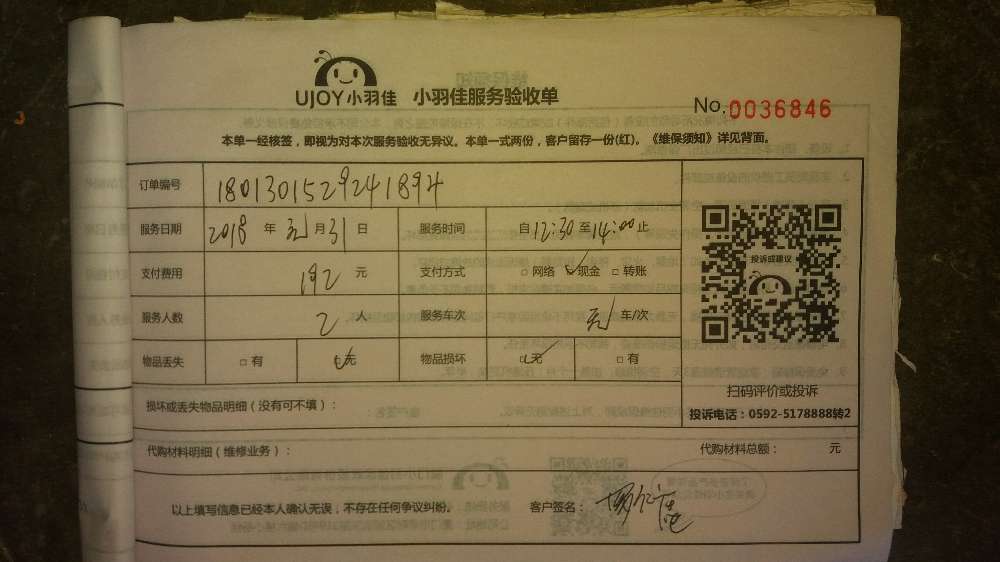 UJOY小羽佳 小羽佳服务验收单 No.0036846
本单一经核签，即视为对本次服务验收无异议。本单一式两份，客户留存一份(红)。《维保须知》详见背面。
订单编号 1801301529241894
服务日期 2018 年 元 月 31 日 服务时间 自 12:30 至 14:00 止
投诉或建议
支付费用 192 元 支付方式 □ 网络 □ 现金 □ 转账
服务人数 2 人 服务车次 元 车/次
物品丢失 □ 有 □ 无 物品损坏 □ 无 □ 有
扫码评价或投诉
损坏或丢失物品明细（没有可不填）： 投诉电话：0592-5178888转2
代购材料明细（维修业务）： 代购材料总额： 元
以上填写信息已经本人确认无误，不存在任何争议纠纷。 客户签名：